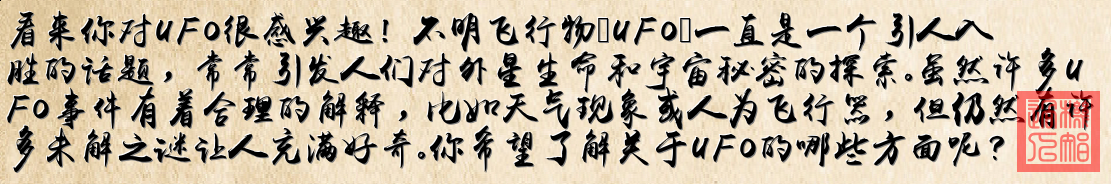 看来你对UFO很感兴趣！不明飞行物▯UFO▯一直是一个引人入
胜的话题，常常引发人们对外星生命和宇宙秘密的探索。虽然许多U
FO事件有着合理的解释，比如天气现象或人为飞行器，但仍然有许
多未解之谜让人充满好奇。你希望了解关于UFO的哪些方面呢？